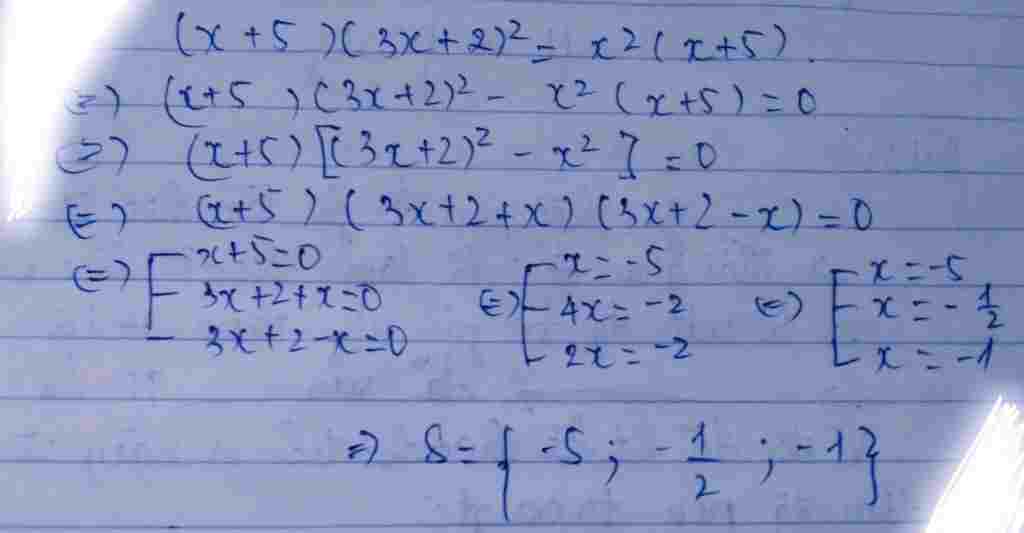 (x+5)(3x+2)² = x²(x+5).
(=) (x+5)(3x+2)² - x²(x+5) = 0
(=) (x+5)[(3x+2)² - x²] = 0
(=) (x+5)(3x+2+x)(3x+2-x) = 0
(=) [ x+5=0 (=) [ x=-5 (=) [ x=-5
3x+2+x=0 4x=-2 x=-1/2
3x+2-x=0 2x=-2 x=-1
=) S={-5; -1/2; -1}